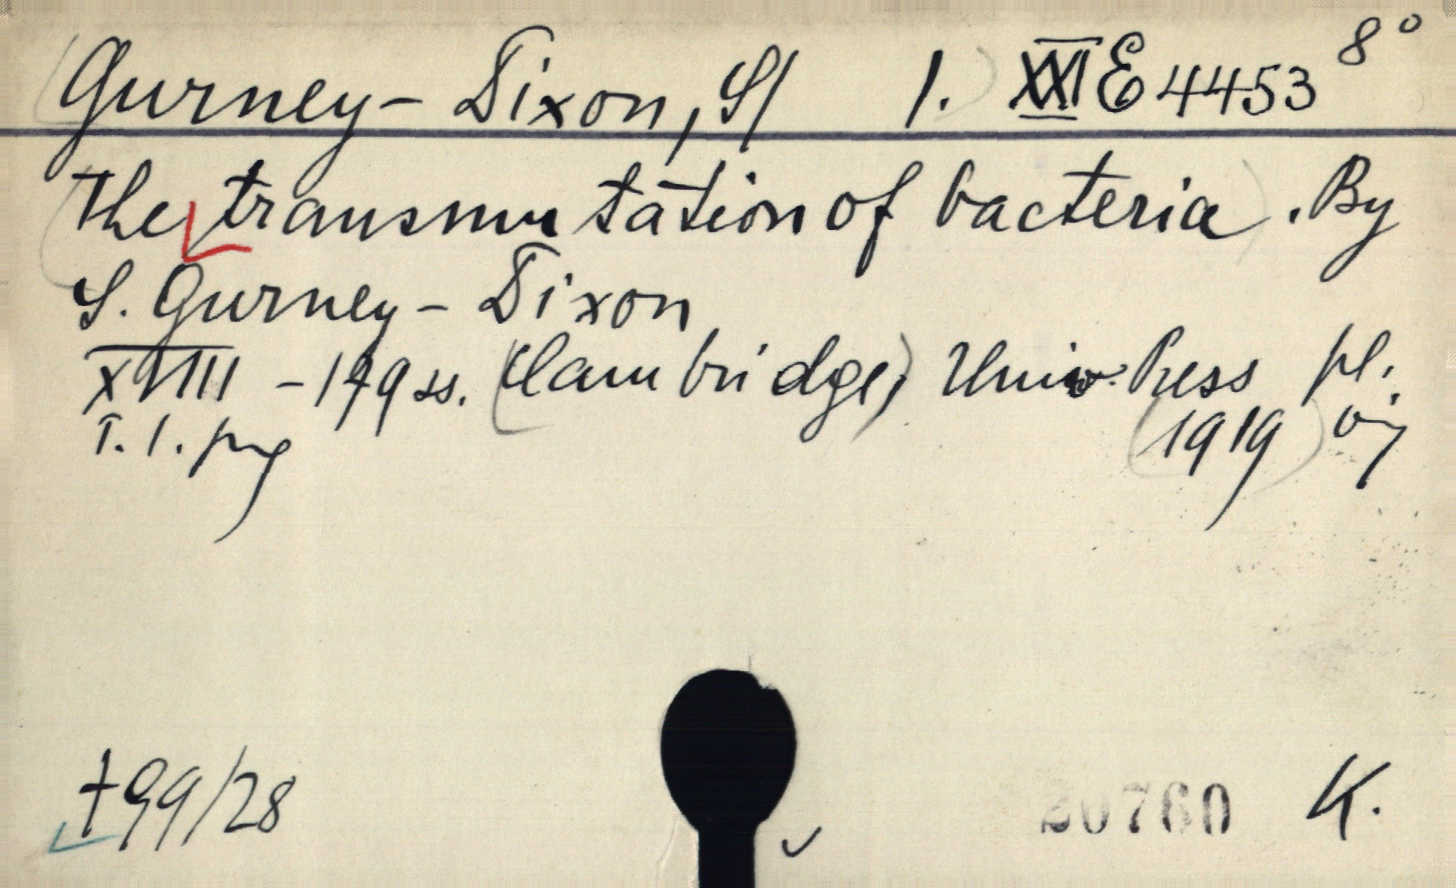 Gurney-Dixon, S/ 1. XXI E 4453 8°
The transmutation of bacteria. By
S. Gurney-Dixon
XVIII - 179 ss. Cambridge, Univ. Press pl.
1919
T. 1.
+99/28
20760 K.